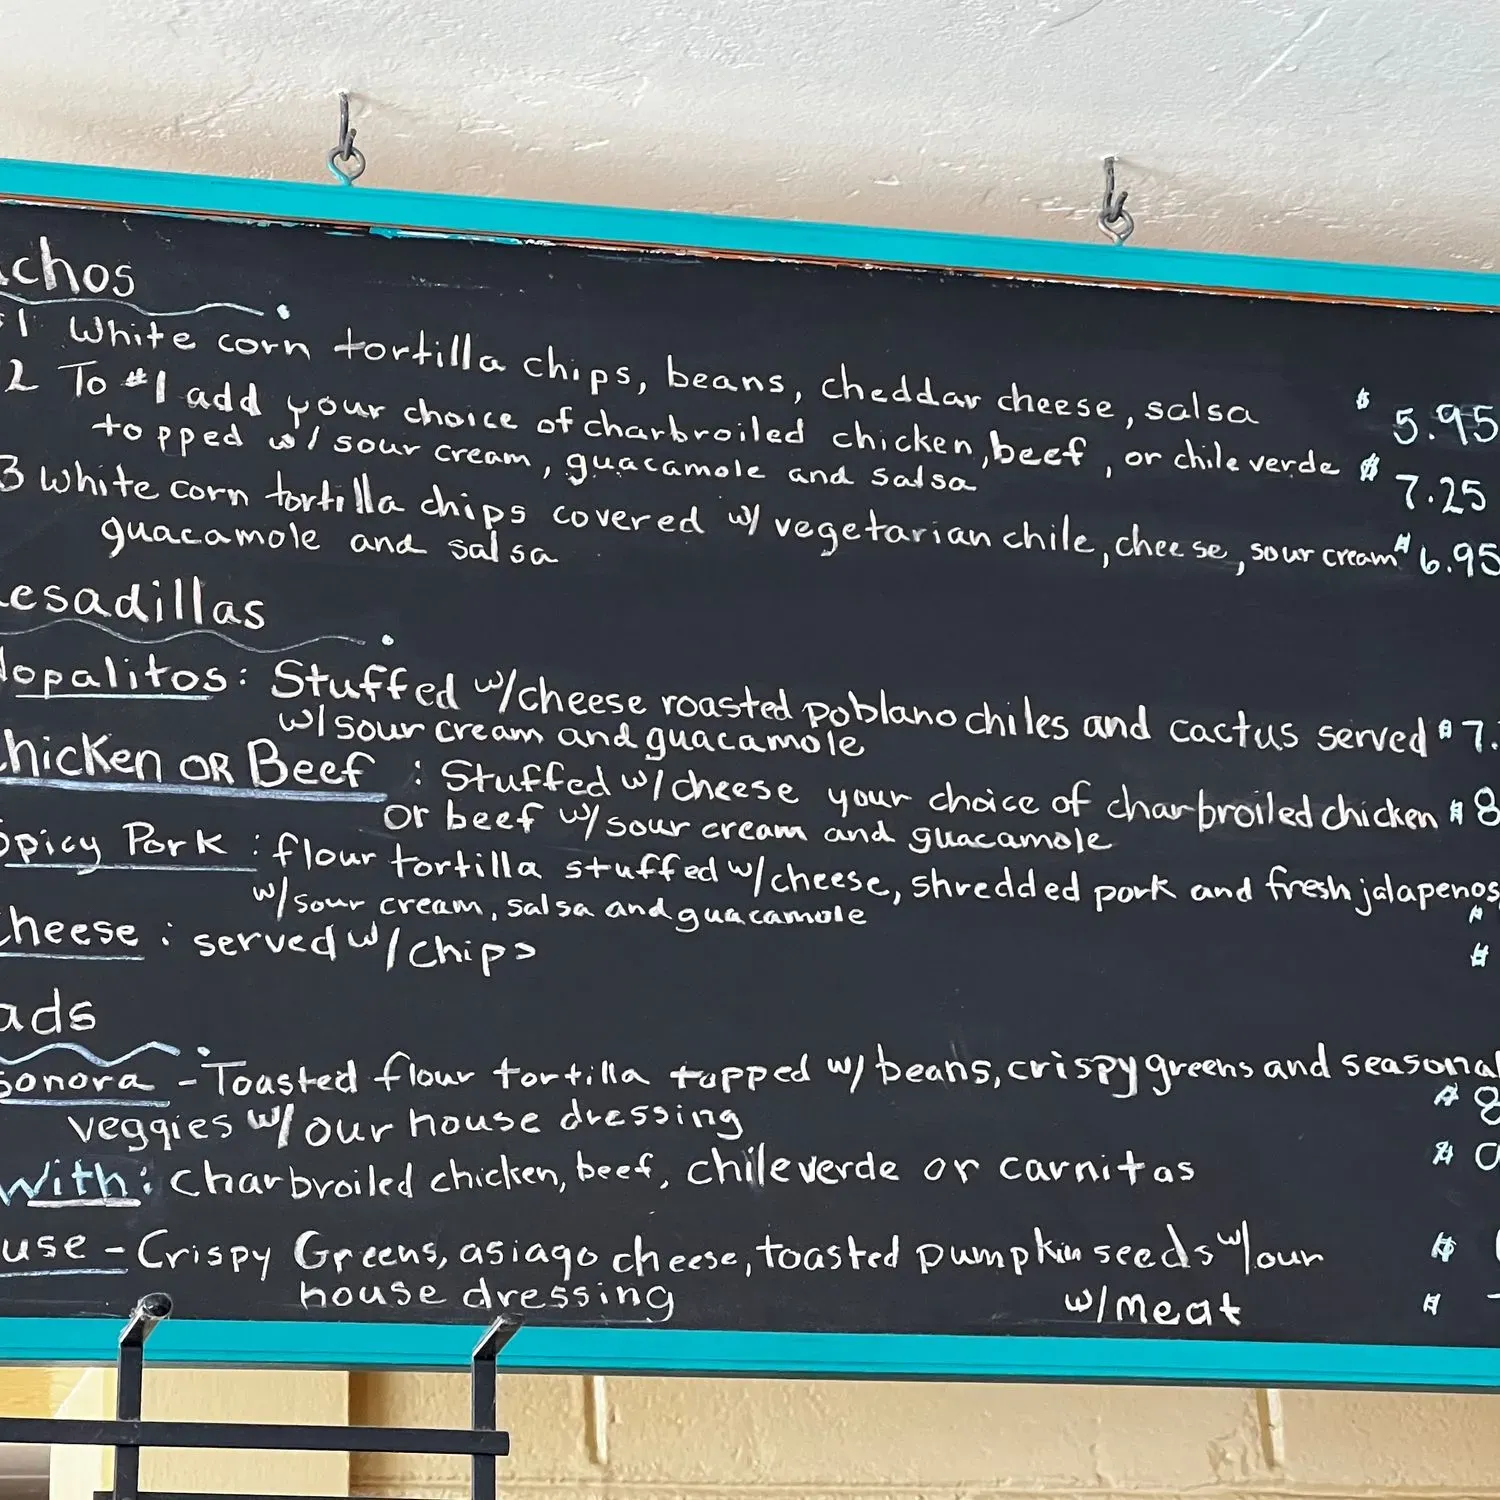 achos
#1 White corn tortilla chips, beans, cheddar cheese, salsa $ 5.95
2 To #1 add your choice of charbroiled chicken, beef, or chile verde $ 7.25
topped w/ sour cream, guacamole and salsa
3 White corn tortilla chips covered w/ vegetarian chile, cheese, sour cream $ 6.95
guacamole and salsa
esadillas
Nopalitos: Stuffed w/ cheese roasted poblano chiles and cactus served $ 7.
w/ sour cream and guacamole
Chicken OR Beef : Stuffed w/ cheese your choice of charbroiled chicken $ 8
or beef w/ sour cream and guacamole
Spicy Pork : flour tortilla stuffed w/ cheese, shredded pork and fresh jalapenos,
w/ sour cream, salsa and guacamole $
Cheese : served w/ chips $
ads
Sonora - Toasted flour tortilla topped w/ beans, crispy greens and seasonal
veggies w/ our house dressing $ 8
With: charbroiled chicken, beef, chile verde or carnitas $
use - Crispy Greens, asiago cheese, toasted pumpkin seeds w/ our $
house dressing w/ meat $